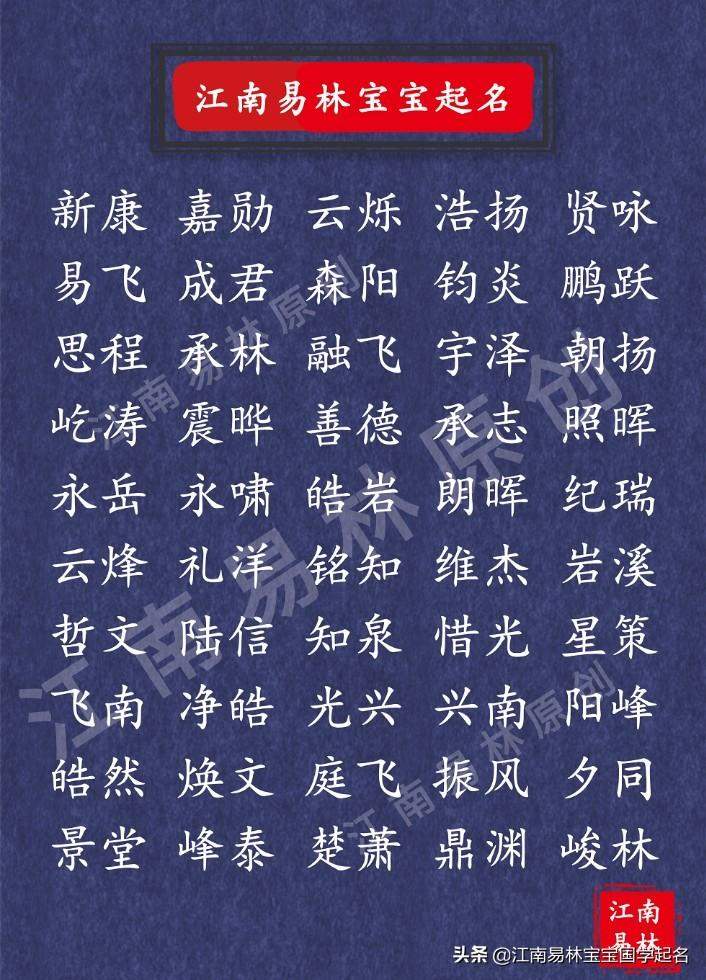 江南易林宝宝起名
新康 嘉勋 云烁 浩扬 贤咏
易飞 成君 森阳 钧炎 鹏跃
思程 承林 融飞 宇泽 朝扬
屹涛 震晔 善德 承志 照晖
永岳 永啸 皓岩 朗晖 纪瑞
云烽 礼洋 铭知 维杰 岩溪
哲文 陆信 知泉 惜光 星策
飞南 净皓 光兴 兴南 阳峰
皓然 焕文 庭飞 振风 夕同
景堂 峰泰 楚萧 鼎渊 峻林
江南易林原创
江南易林原创
江南易林原创
江南
易林
头条 @江南易林宝宝国学起名